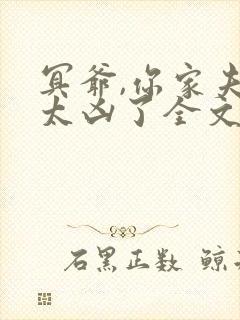 冥爷,你家夫
太凶了全文
石黑正数 鲸